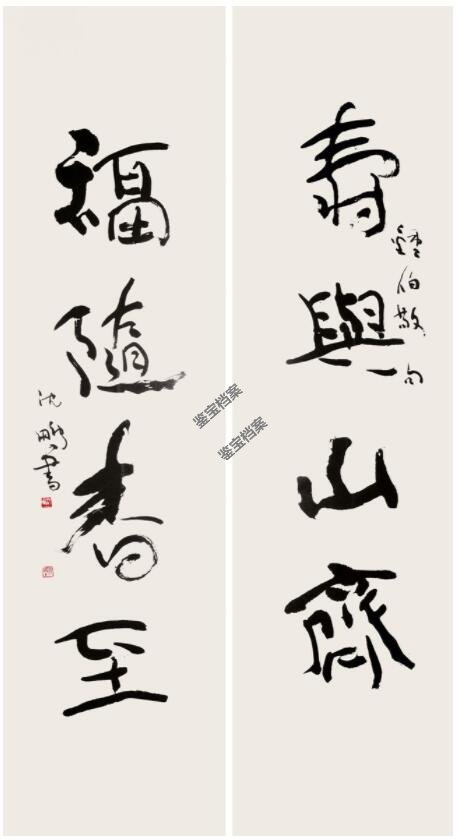 壽與山齊
鍾伯敬句
福隨春至
沈鵬書
鉴宝档案
鉴宝档案